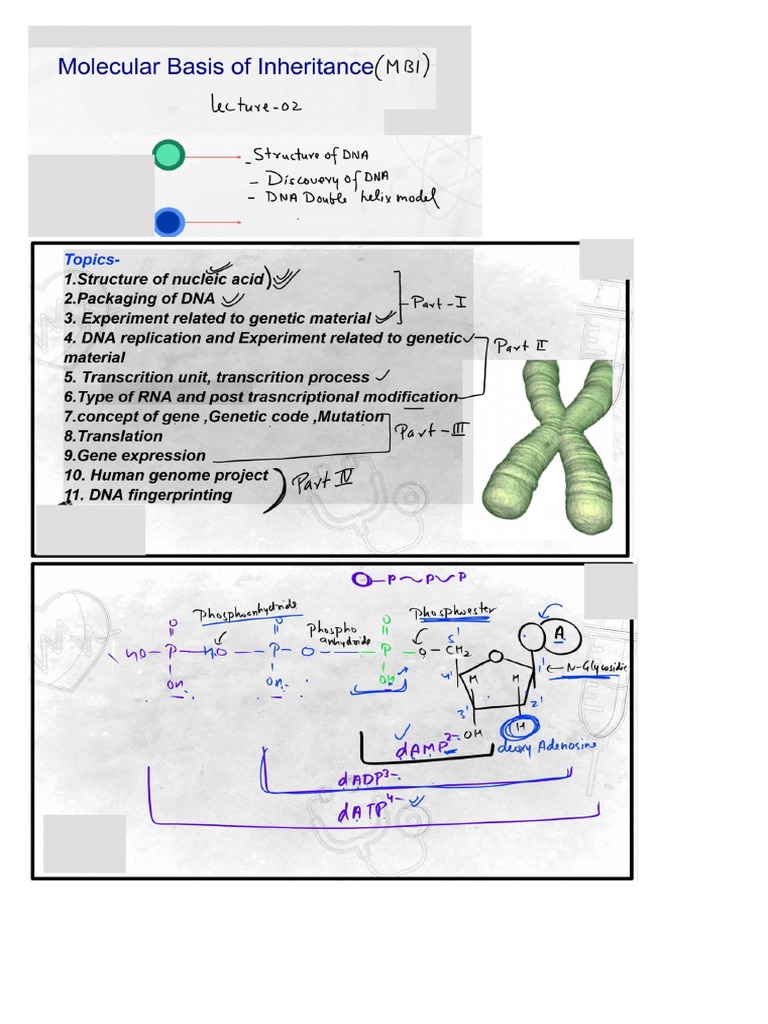 Molecular Basis of Inheritance (MBI)
Lecture-02
- Structure of DNA
- Discovery of DNA
- DNA Double helix model
Topics-
1.Structure of nucleic acid)
2.Packaging of DNA
3. Experiment related to genetic material
Part-I
4. DNA replication and Experiment related to genetic
material
Part II
5. Transcrition unit, transcrition process
6.Type of RNA and post trasncriptional modification
7.concept of gene ,Genetic code ,Mutation
8.Translation
Part-III
9.Gene expression
10. Human genome project
Part IV
11. DNA fingerprinting
O-P~P~P
Phosphoanhydride
Phospho
anhydride
Phosphoester
O O O
HO-P-HO-P-O-P-O-CH2
OH OH OH
5'
A
4' H H 1' ← N-Glycosidic
3' 2'
OH H
deoxy Adenosine
dAMP2-
dADP3-
dATP4-